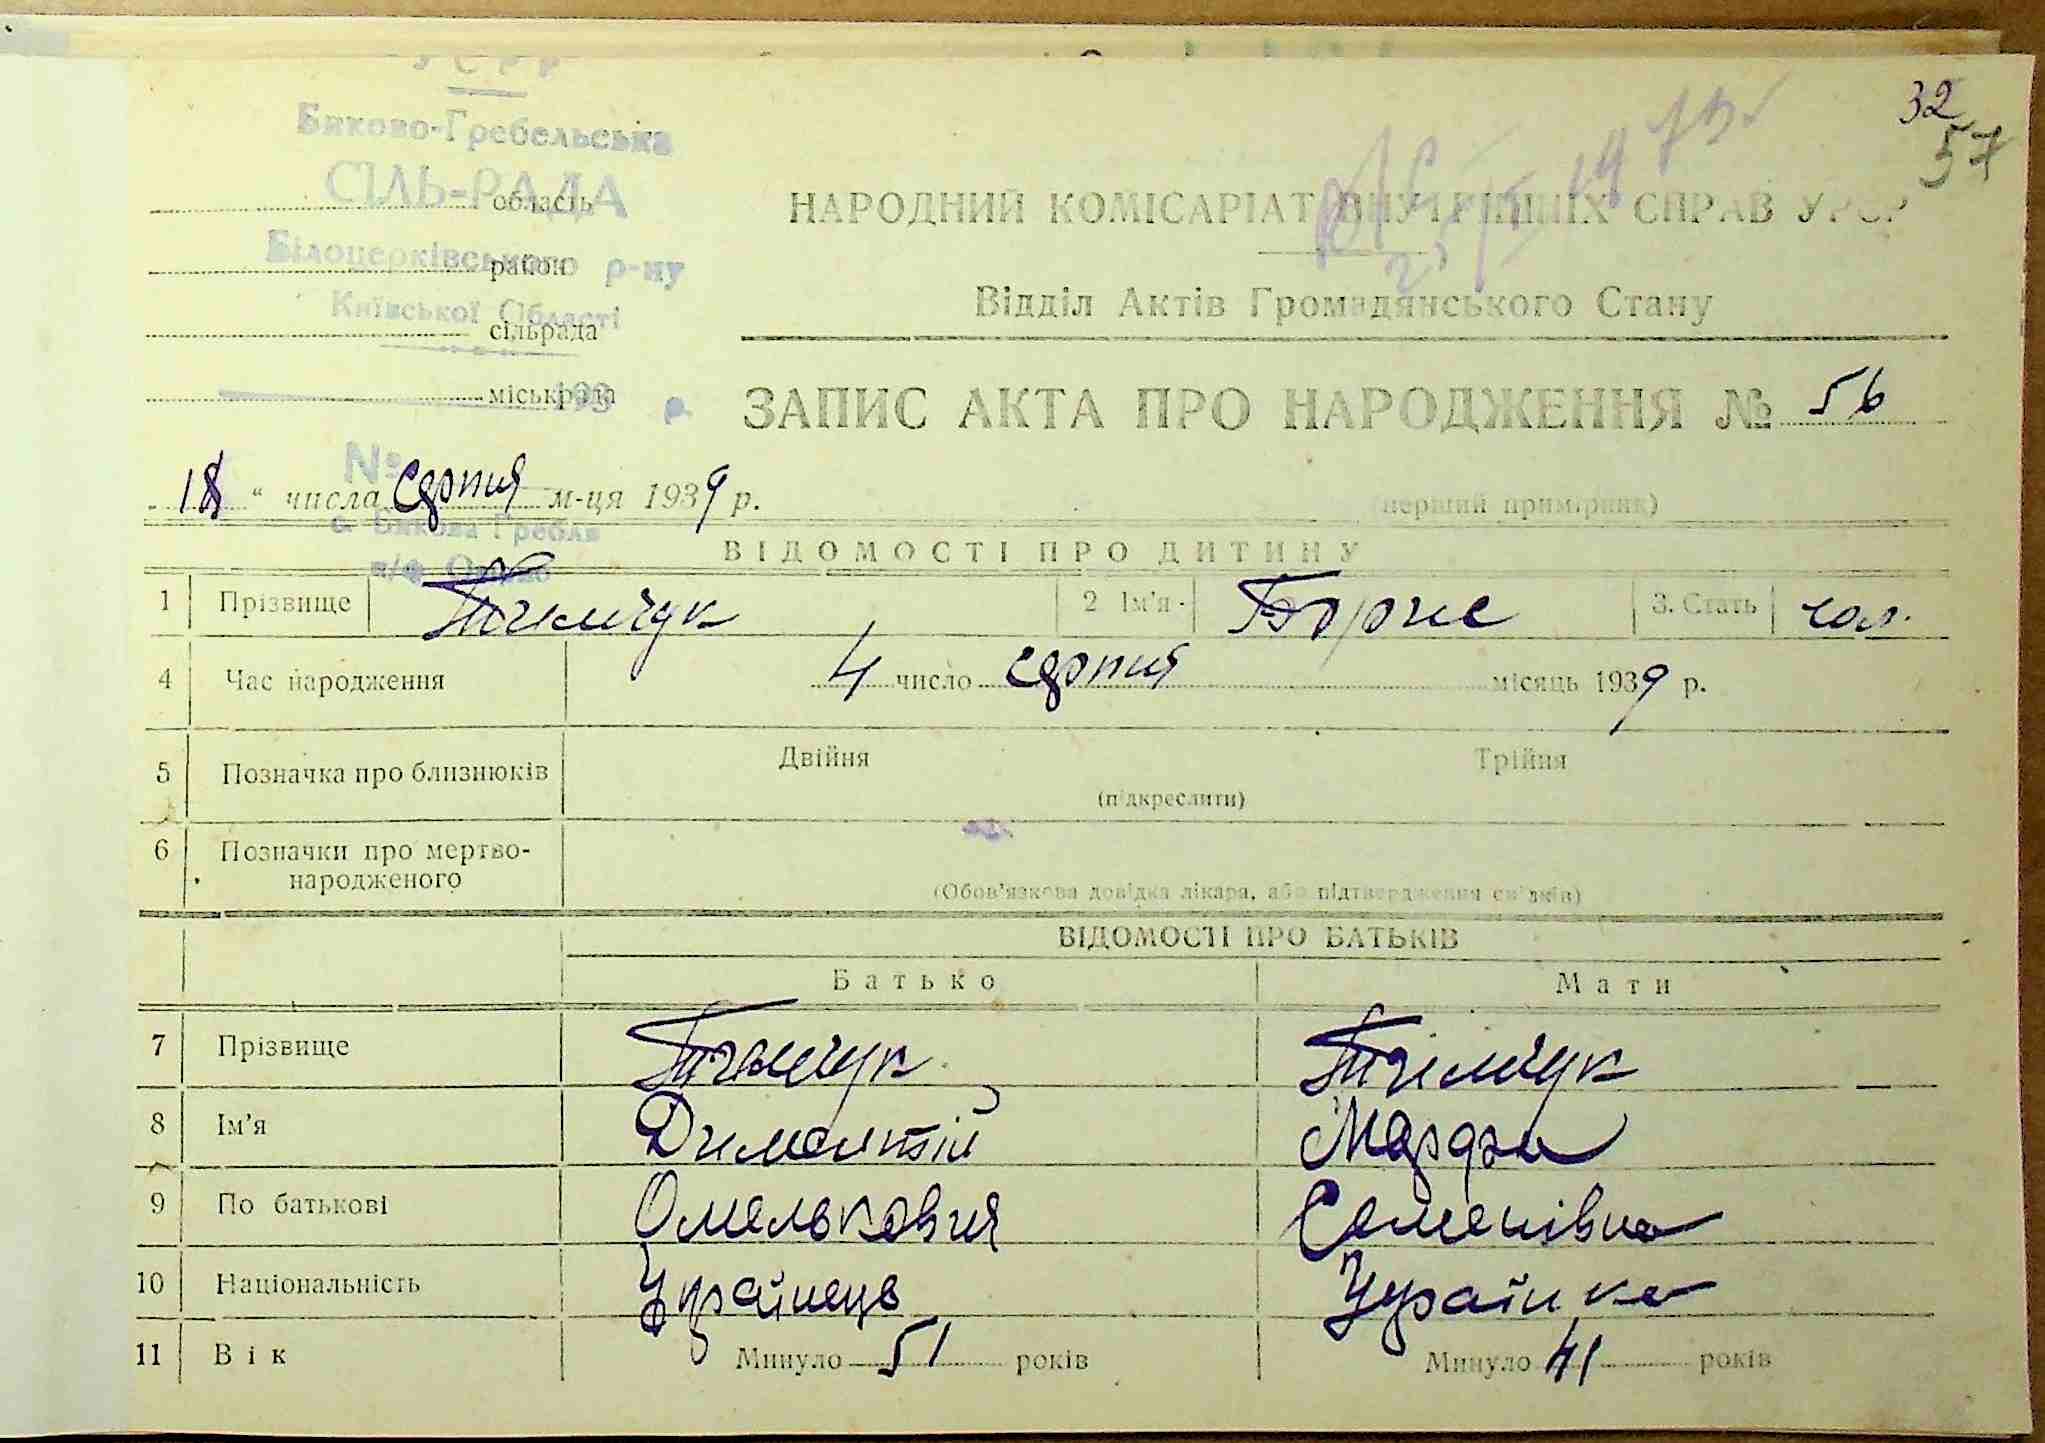 УСРР
32
57
Биково-Гребельська
СІЛЬ-РАДА
область
НАРОДНИЙ КОМІСАРІАТ ВНУТРІШНІХ СПРАВ УРСР
Білоцерківського р-ну
район
Київської Області
Відділ Актів Громадянського Стану
сільрада
міськрада
193 р.
ЗАПИС АКТА ПРО НАРОДЖЕННЯ № 56
№
18 “ числа серпня м-ця 1939 р.
(перший примірник)
с. Бикова Гребля
п/в
ВІДОМОСТІ ПРО ДИТИНУ
1 Прізвище Тимчук 2 Ім'я Борис 3. Стать чол.
4 Час народження 4 число серпня місяць 1939 р.
5 Позначка про близнюків Двійня Трійня
(підкреслити)
6 Позначки про мертво-
народженого
(Обов'язкова довідка лікара, або підтвердження свідків)
ВІДОМОСТІ ПРО БАТЬКІВ
Батько Мати
7 Прізвище Тимчук Тимчук
8 Ім'я Дементій Марфа
9 По батькові Омелькович Семенівна
10 Національність Українець Українка
11 Вік Минуло 51 років Минуло 41 років